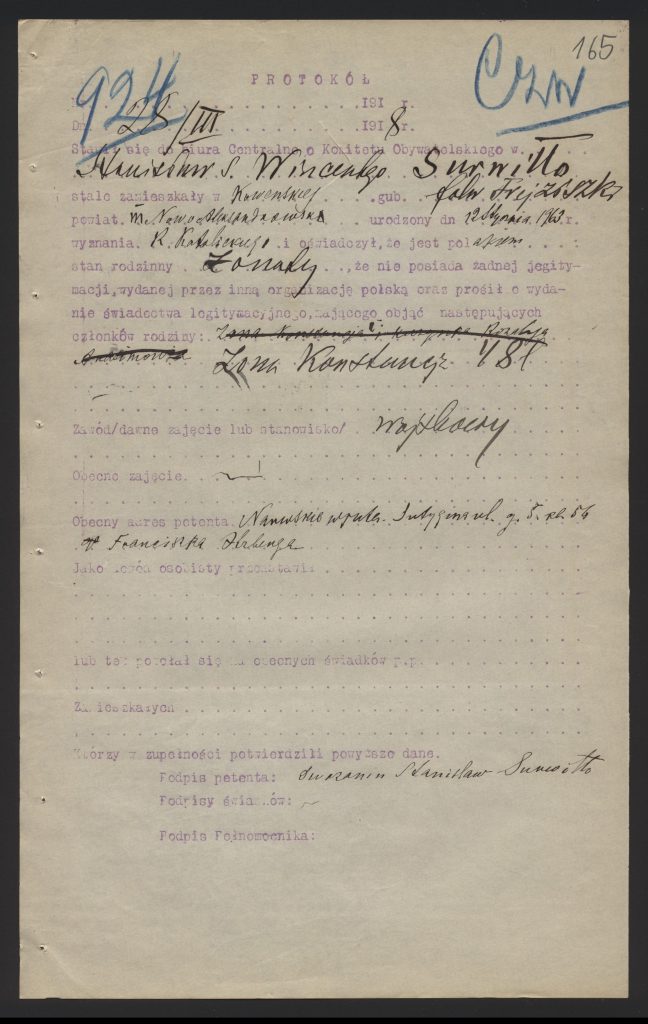 165
924
PROTOKÓŁ
191 r.
Dn. 28/III 1918 r.
Stawił się do Biura Centralnego Komitetu Obywatelskiego w
Stanisław s. Wincentego Surwiłło
stale zamieszkały w Kowenskiej gub. folw.
powiat. urodzony dn 12 Stycznia 1863 r.
wyznania. R. Katolickiego i oświadczył, że jest polakiem
stan rodzinny Żonaty, że nie posiada żadnej legity-
macji, wydanej przez inną organizację polską oraz prosił o wyda-
nie świadectwa legitymacyjnego, mającego objąć następujących
członków rodziny: Żona Konstancja i
Żona Konstancja
Zawód/dawne zajęcie lub stanowisko/
Obecne zajęcie.
Obecny adres petenta. g. 5. 56
Franciszka
Jako dowód osobisty przedstawił
lub też powołał się na obecnych świadków p.p.
Zamieszkałych
Którzy w zupełności potwierdzili powyższe dane.
Podpis petenta: Stanisław Surwiłło
Podpisy świadków:
Podpis Pełnomocnika: